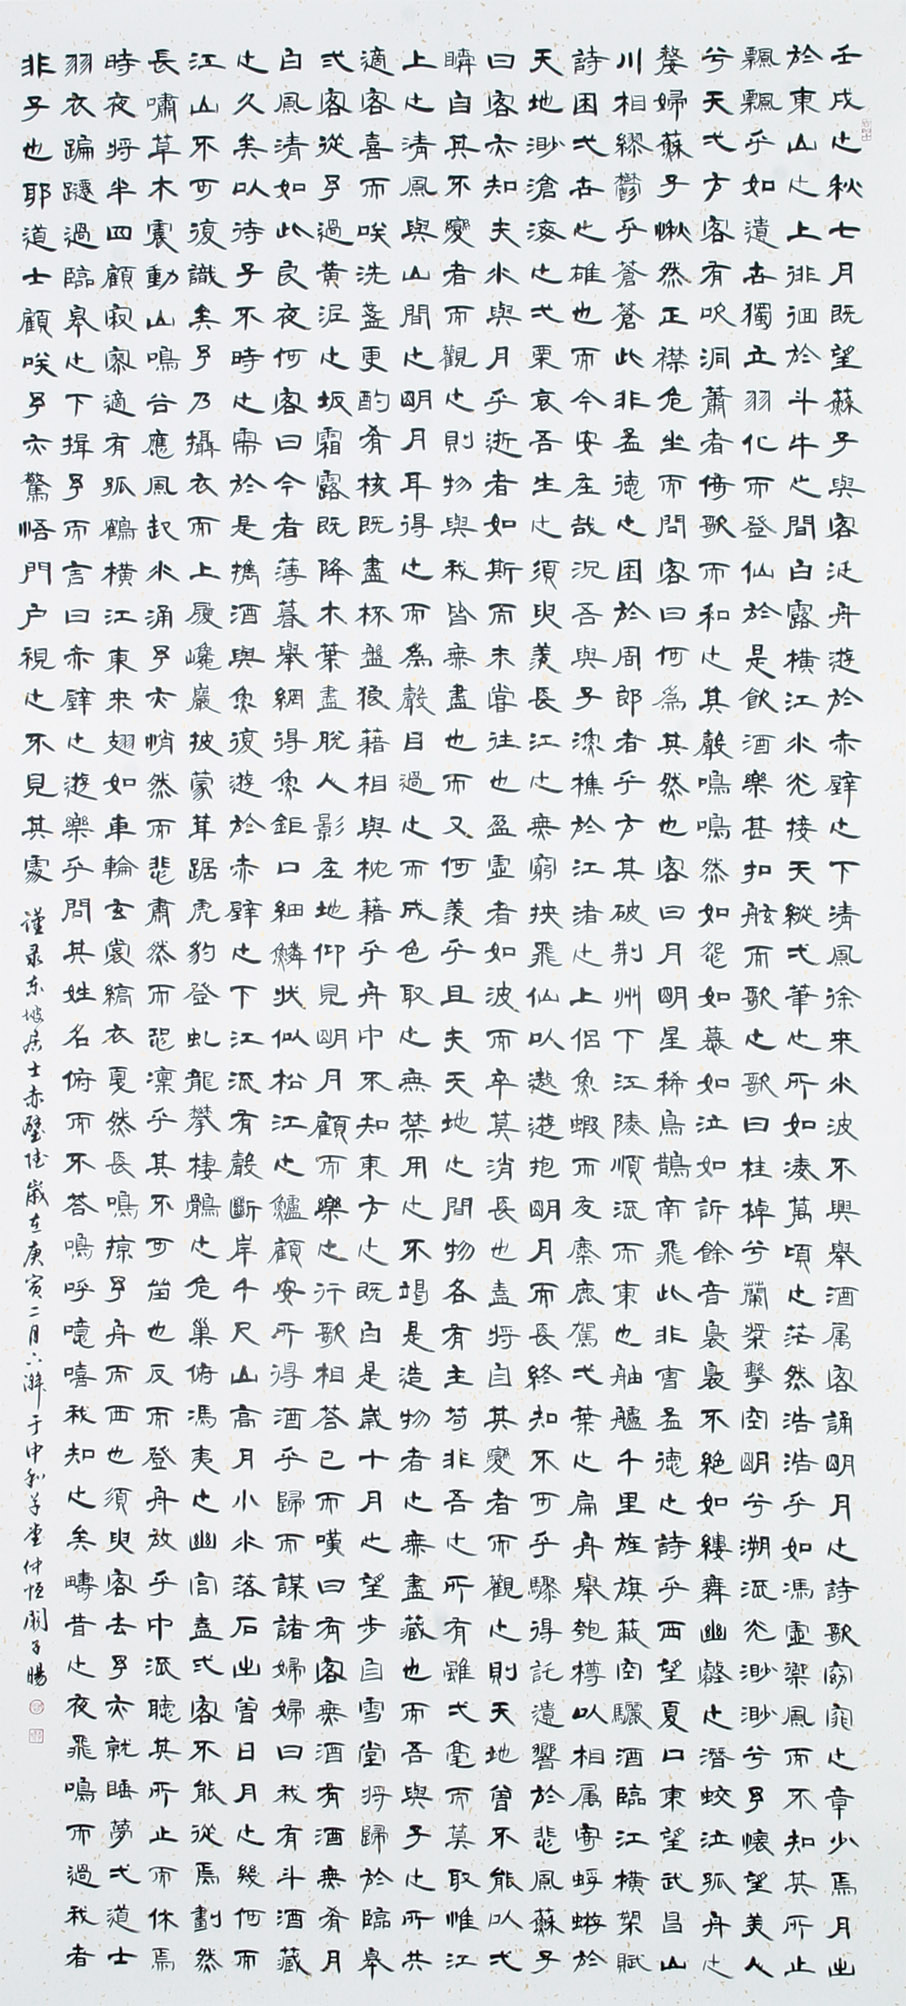 壬戌之秋七月既望蘇子與客泛舟遊於赤壁之下清風徐來水波不興舉酒属客誦明月之詩歌窈窕之章少焉月出
於東山之上徘徊於斗牛之間白露橫江水光接天縱弌葦之所如凌萬頃之茫然浩浩乎如馮虛禦風而不知其所止
飄飄乎如遺世獨立羽化而登仙於是飲酒樂甚扣舷而歌之歌曰桂棹兮蘭槳擊空明兮溯流光渺渺兮予懷望美人
兮天弌方客有吹洞簫者倚歌而和之其聲鳴鳴然如怨如慕如泣如訴餘音裊裊不絕如縷舞幽壑之潛蛟泣孤舟之
嫠婦蘇子愀然正襟危坐而問客曰何為其然也客曰月明星稀烏鵲南飛此非曹孟德之詩乎西望夏口東望武昌山
川相繆鬱乎蒼蒼此非孟德之困於周郎者乎方其破荊州下江陵順流而東也舳艫千里旌旗蔽空釃酒臨江橫槊賦
詩固弌世之雄也而今安在哉況吾與子漁樵於江渚之上侶魚蝦而友麋鹿駕弌葉之扁舟舉匏樽以相属寄蜉蝣於
天地渺滄海之弌粟哀吾生之須臾羨長江之無窮挾飛仙以遨遊抱明月而長終知不可乎驟得託遺響於悲風蘇子
曰客亦知夫水與月乎逝者如斯而未嘗往也盈虛者如波而卒莫消長也蓋將自其變者而觀之則天地曾不能以弌
瞬自其不變者而觀之則物與我皆無盡也而又何羨乎且夫天地之間物各有主苟非吾之所有雖弌毫而莫取惟江
上之清風與山間之明月耳得之而為聲目遇之而成色取之無禁用之不竭是造物者之無盡藏也而吾與子之所共
適客喜而笑洗盞更酌肴核既盡杯盤狼藉相與枕藉乎舟中不知東方之既白是歲十月之望步自雪堂將歸於臨皋
弍客從予過黃泥之坂霜露既降木葉盡脫人影在地仰見明月顧而樂之行歌相答已而嘆曰有客無酒有酒無肴月
白風清如此良夜何客曰今者薄暮舉網得魚鉅口細鱗狀似松江之鱸顧安所得酒乎歸而謀諸婦婦曰我有斗酒藏
之久矣以待子不時之需於是攜酒與魚復遊於赤壁之下江流有聲斷岸千尺山高月小水落石出曾日月之幾何而
江山不可復識矣予乃攝衣而上履巉巖披蒙茸踞虎豹登虬龍攀棲鶻之危巢俯馮夷之幽宮蓋弍客不能從焉劃然
長嘯草木震動山鳴谷應風起水涌予亦悄然而悲肅然而恐凜乎其不可留也反而登舟放乎中流聽其所止而休焉
時夜將半四顧寂寥適有孤鶴橫江東來翅如車輪玄裳縞衣戛然長鳴掠予舟而西也須臾客去予亦就睡夢弌道士
羽衣蹁躚過臨皋之下揖予而言曰赤壁之遊樂乎問其姓名俯而不答嗚呼噫嘻我知之矣疇昔之夜飛鳴而過我者
非子也耶道士顧笑予亦驚悟開戶視之不見其處
謹录东坡居士赤壁 歲在庚寅二月 於中和草堂仲恒